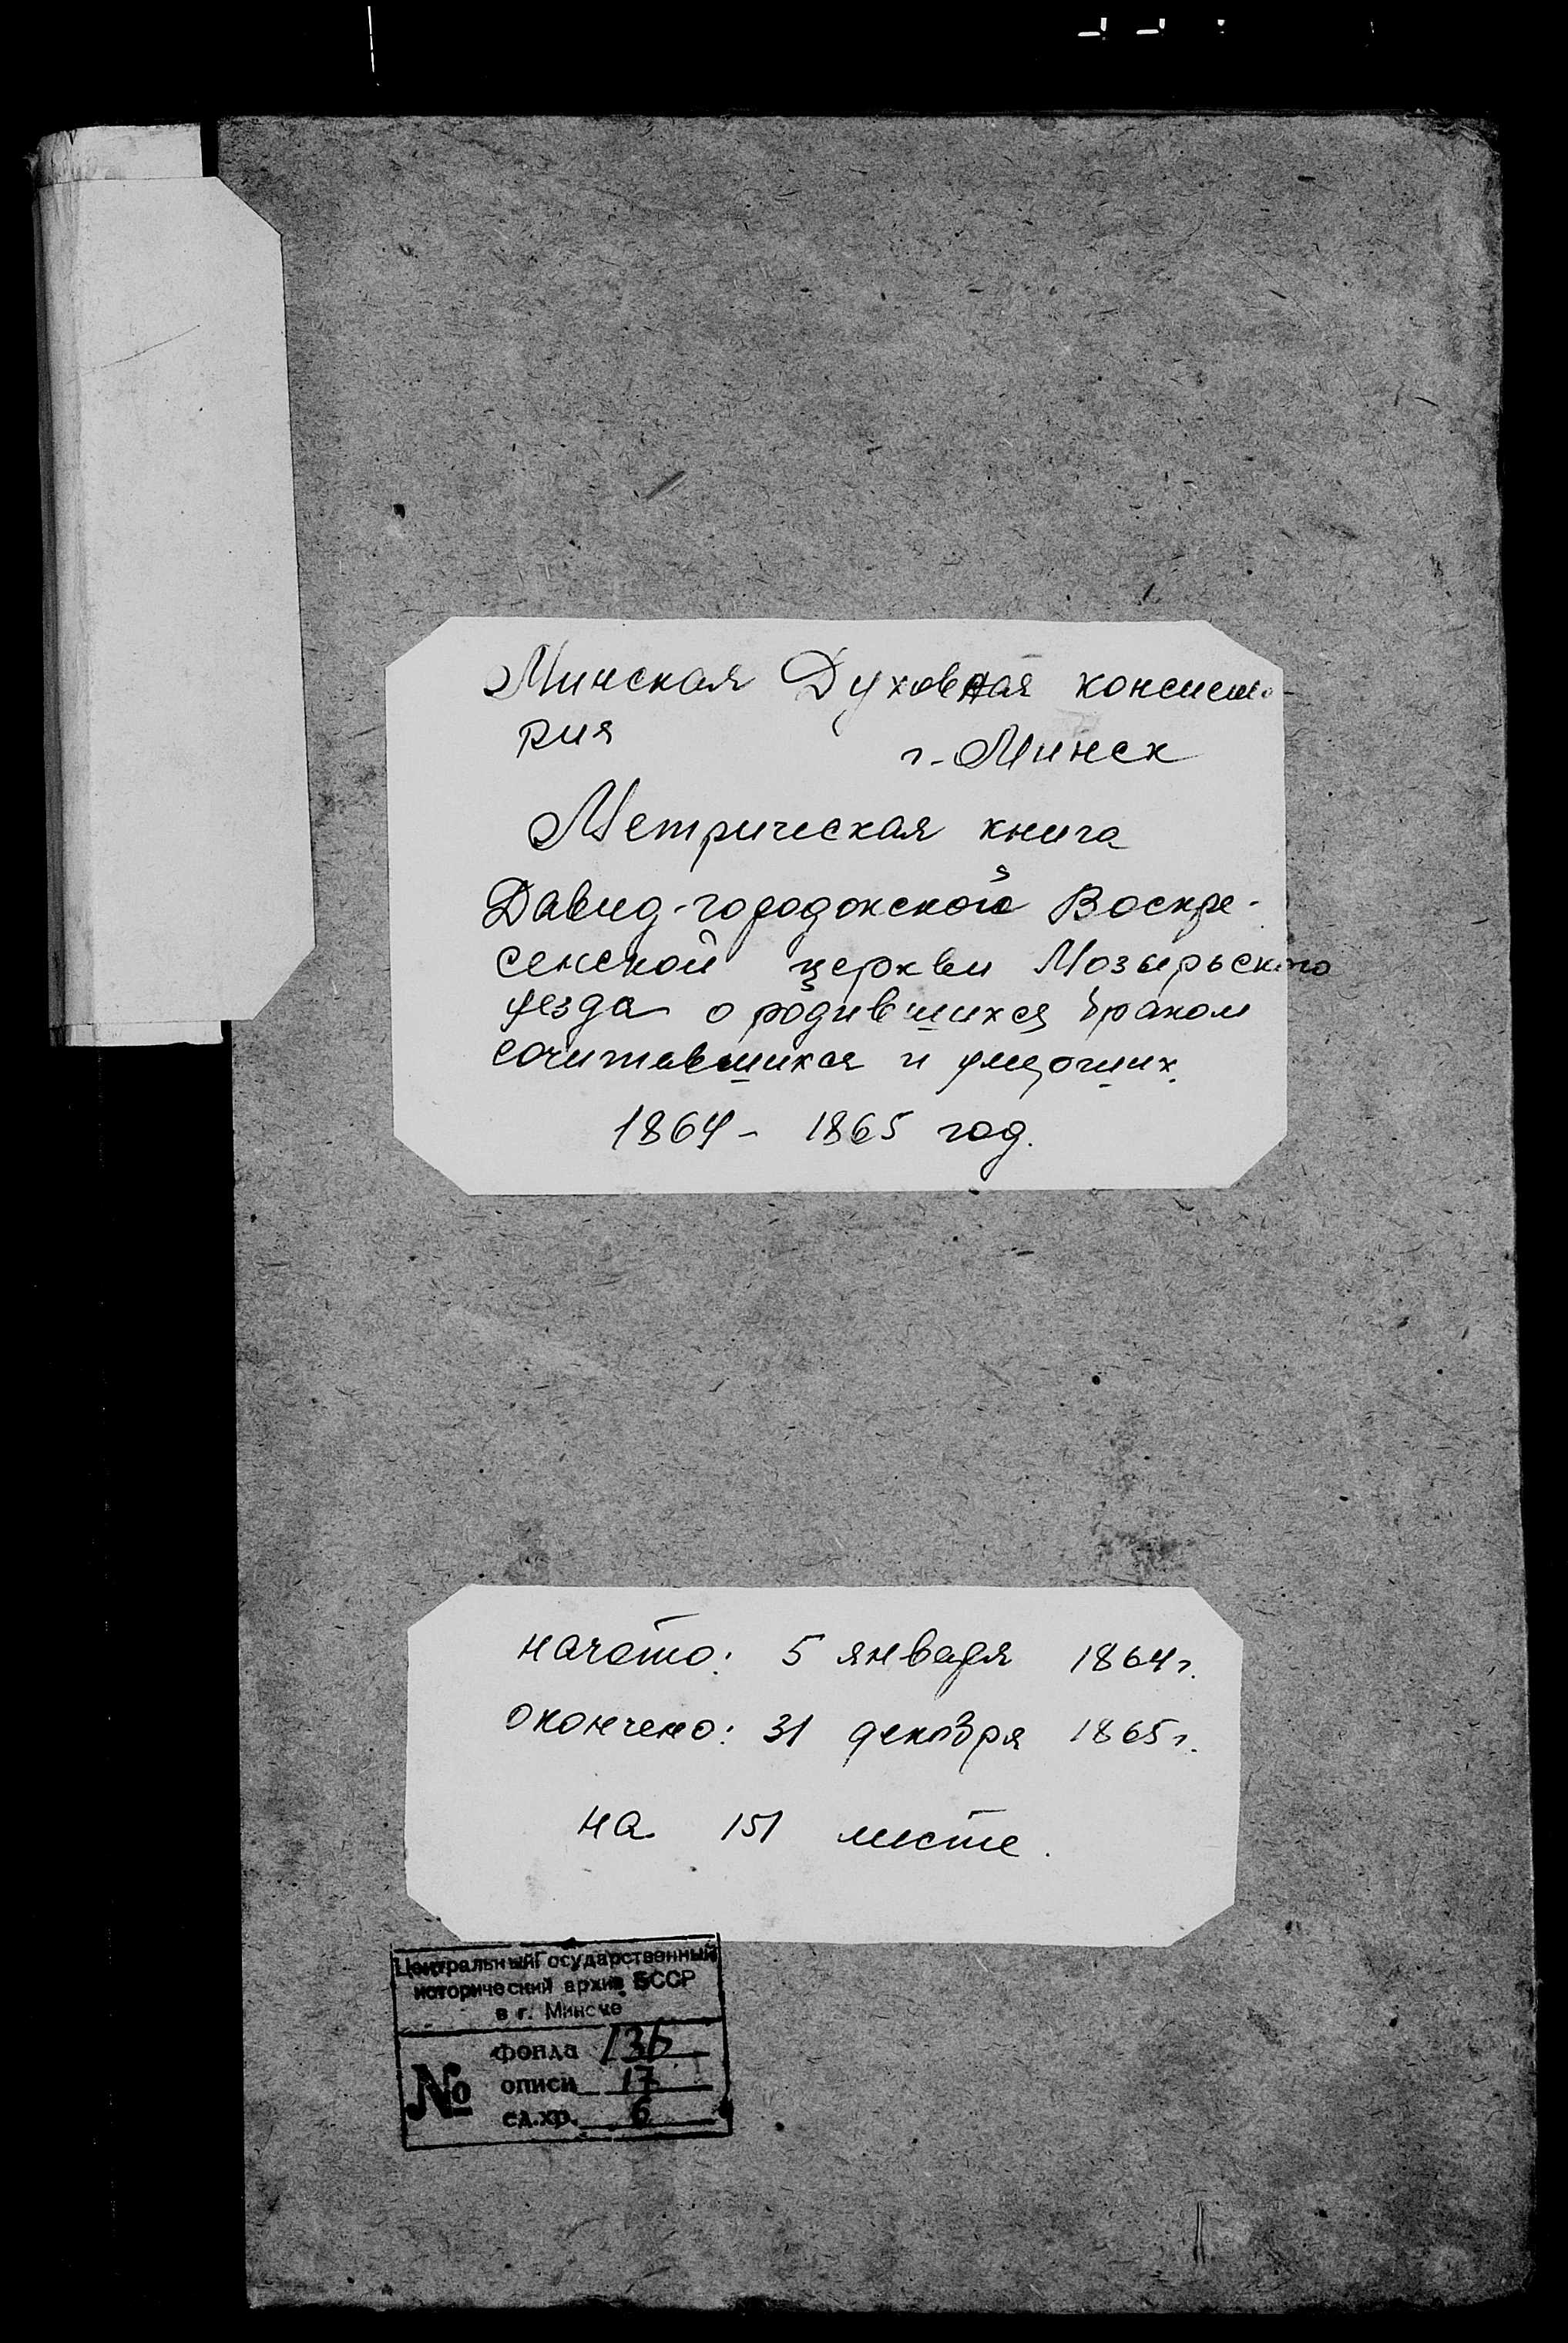 Минская Духовная консисто-
рия
г. Минск
Метрическая книга
Давид-городокской Воскре-
сенской церкви Мозырьского
уезда о родившихся браком
сочитавшихся и умерших.
1864 - 1865 год.
начато: 5 января 1864 г.
окончено: 31 декабря 1865 г.
на 151 листе.
Центральный Государственный
исторический архив БССР
в г. Минске
№ фонда 136
описи 17
ед.хр. 6